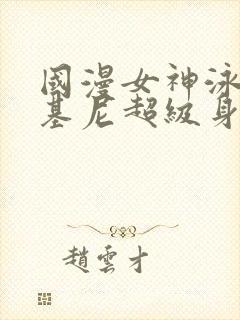 國漫女神泳
基尼超級身
趙雲才